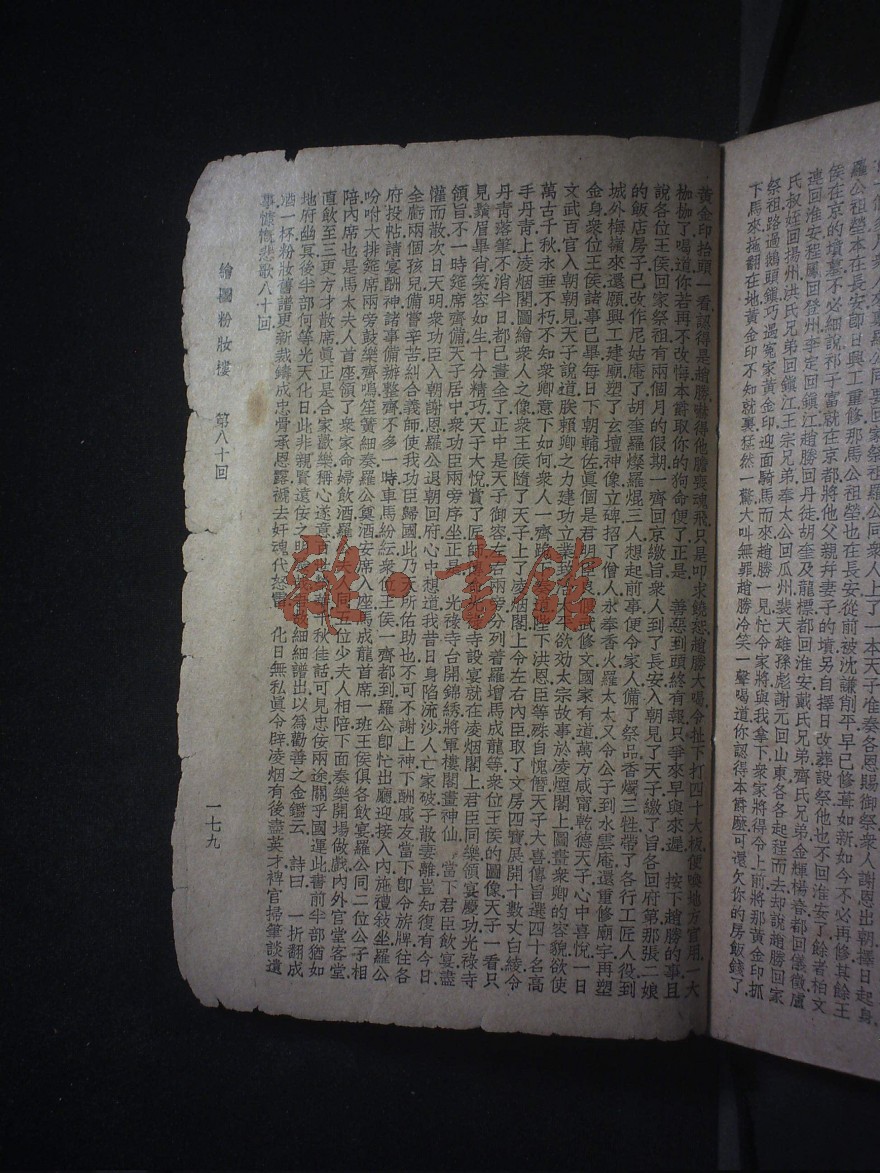 羅公祖塋本在長安卽日興工重修那馬公祖塋也在長安從前被沈謙削平早已修葺如新如今不必再修其餘王
侯在京的墳墓不必細說祁子富就在京都將他父親幷妻子的墳另自擇日改葬設祭他也不回淮安了餘者柏文
連回淮安程鳳回登州李定回鎭江趙勝回丹徒胡奎及龍標都回淮安戴氏兄弟齊氏兄弟金輝楊春都回儀徵盧
氏叔姪回揚州洪氏兄弟回鎭江王宗兄弟奉太公回瓜州裴天雄孫彪謝元回山東各各起程而去却說趙勝回家
祭祖路過鵝頭鎭巧遇冤家黃金印迎面騎馬而來趙勝一見忙令家將與我拿下衆家將得令上前將那黃金印抓
下馬來拖翻在地黃金印不知就裏猛然一驚大叫無罪趙勝冷笑一聲喝道你認得本爵麽可還欠你的房飯錢了
黃金印抬頭一看認得是趙勝嚇得他膽喪魂飛只是叩求饒恕趙勝大喝令扯下打四十大板便喚地方官用一大
枷枷了喝道你若再不改悔本爵取你的狗命便了正是 善惡到頭終有報只爭來早與來遲 按下趙勝的事且
說各位王侯回家祭祖有兩個月的假期一齊回京繳旨衆人到了長安入朝見了天子繳了旨各回府第那張二娘
的飯店房子已改作尼姑庵了胡奎羅燦羅焜三人想起前事便令家人備了祭品香燭三牲帶了各行工匠人役到
城外梅嶺來還願興工建廟塑了玄壇神像立碑招了僧人永奉香火羅太太又令公子到水雲庵還重修廟宇再塑
金身衆位王侯諸事已畢每日下朝輔佐眞個是君明臣良偃武修文國家有道萬方咸甯乾德天子心中喜悅一日
文武百官入朝朝見天子說道朕賴卿之力建功立業效太宗故事於凌煙閣上圖畫衆卿的容貌欲使
萬古千秋永垂不朽不知衆卿意下如何衆人一齊下洪恩臣等殊自愧僭天子大喜傳旨選四十名高
手丹靑上凌烟閣圖繪衆人之像衆王侯隨了天子上了凌烟閣上令左右內臣取了文房四寶展開十數丈白綾令
丹靑落筆不消半日都已畫全了正中是天子御容左右兩旁分列着羅增馬成龍等衆位王侯的圖像天子一看只
見鬚眉畢肖笑容如生十分精巧天子大悅賞了匠師光祿寺設宴就在凌烟閣上君臣同樂領宴慶功光祿寺
領旨不一時筵席齊備天子居中衆功臣兩旁序坐正是 光祿寺台開錦綉將軍樓閣畫神仙 當下君臣飲宴盡
懽而散次日天明衆功臣入朝謝恩羅公退朝回府心中想道我昔日身陷流沙人亡家破子散妻離豈知復有今日
全虧兩個孩兒備嘗辛苦糾合義師使我功臣歸國此乃天所佑助也不可不謝上神下酬戚友當下卽令旂牌往各
府投帖請宴酬神諸事備辦整齊不多一時車馬紛紜衆位王侯一齊都到羅公卽忙出廳迎接入內施禮敍坐羅公
吩咐大排筵席兩旁鼓樂齊鳴笙簧細奏羅公奠酒安席入座馬成龍首席一班王侯俱各飲宴羅公同二位公子相
陪內席也是馬太夫人首座領了衆家命婦飲酒羅同五位少夫人相陪下面奏樂開場做戲內外官堂客堂
直飲至三更方才散席眞正是合家歡樂稱心遂意千秋佳話可見忠佞兩途關乎國運此書前半部猶如
地府幽冥後半部何等光天化日此非親賢遠佞之明細細譜出以爲勸善之金鑑云 詩曰 一折翻成
酒一杯粉妝舊譜更新裁鑄成忠骨承恩露襯去奸魂代怒雷 化日無私眞令辟凌烟有後盡英才稗官掃筆談遺
事慷慨悲歌八十回
繪圖粉妝樓 第八十回 一七九
雜·書館